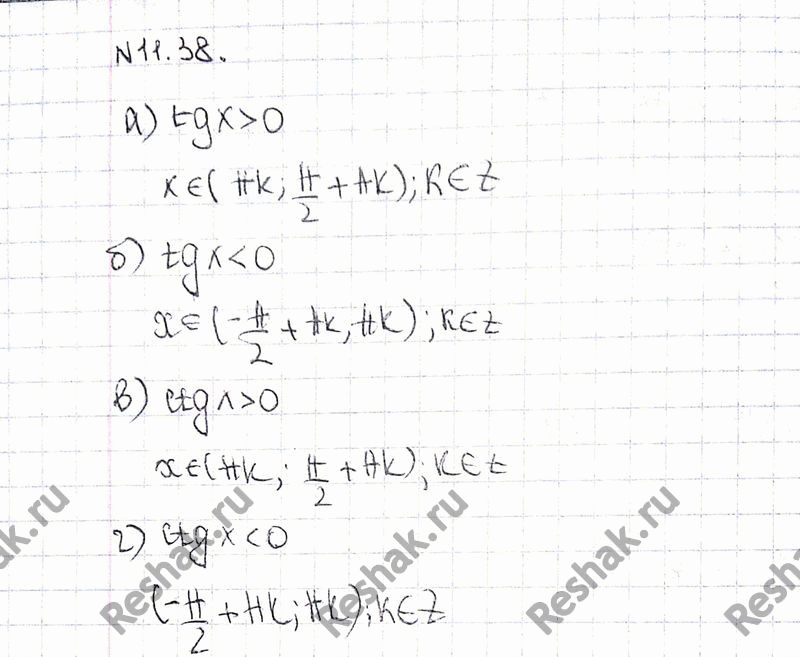 N11.38.
а) tgx>0
x∈(πk; π/2+πk); k∈Z
б) tgx<0
x∈(-π/2+πk; πk); k∈Z
в) ctgx>0
x∈(πk; π/2+πk); k∈Z
г) ctgx<0
(-π/2+πk; πk); k∈Z
Reshak.ru
Reshak.ru
Reshak.ru
Reshak.ru